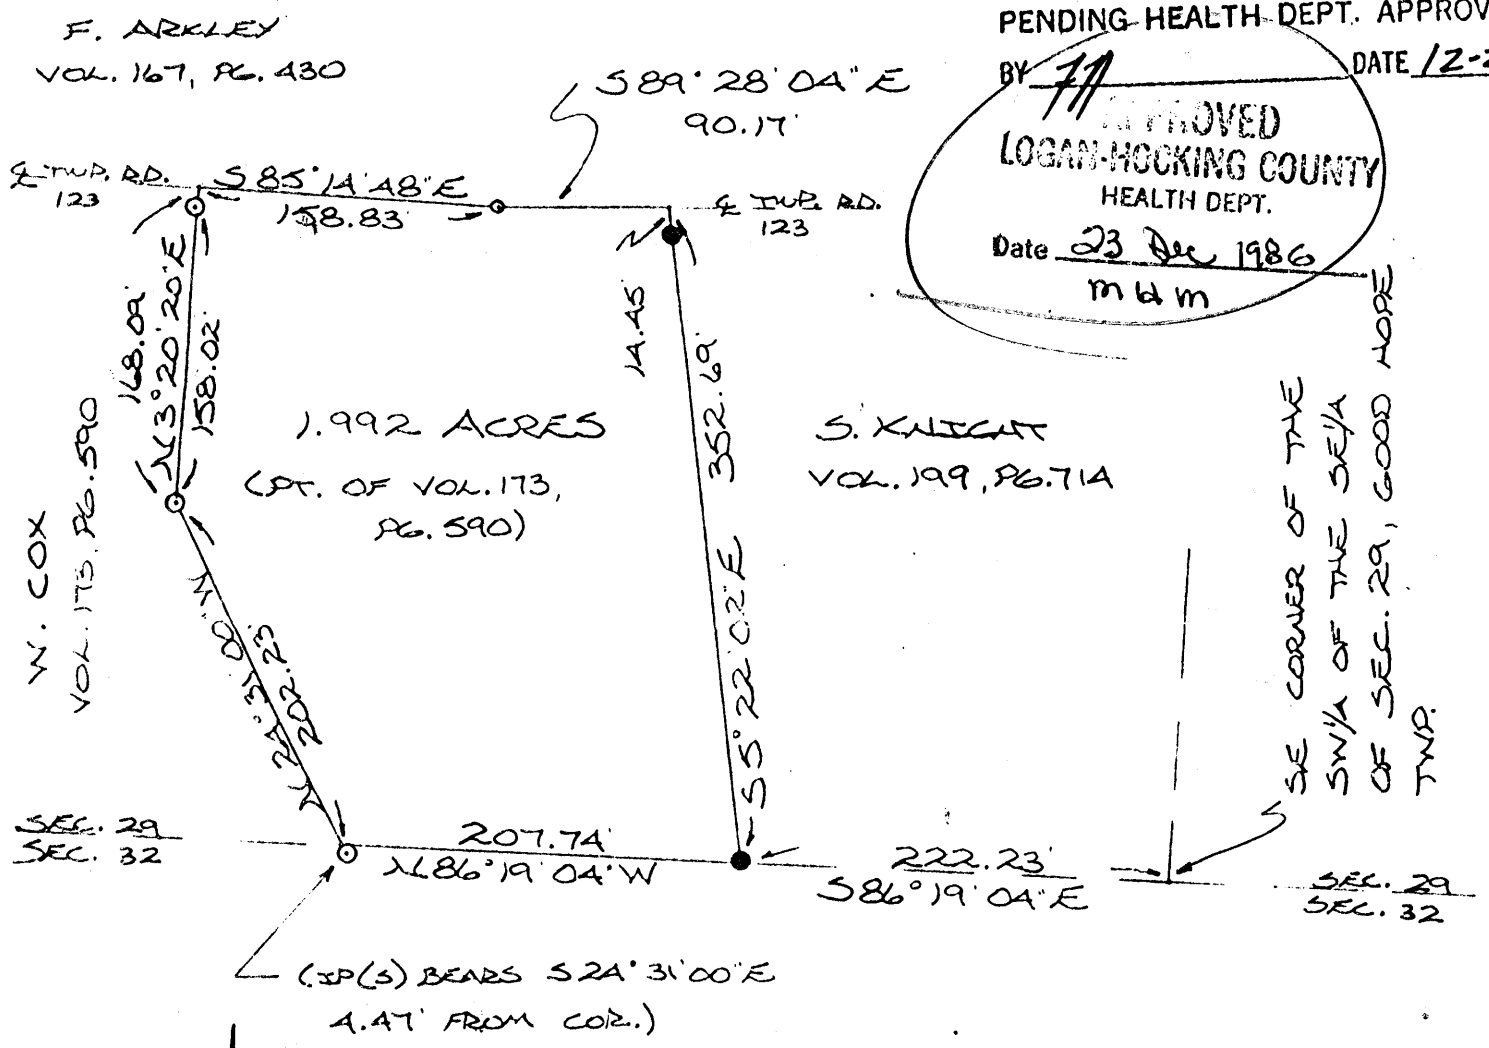 F. ARKLEY
VOL. 167, PG. 430
S 89° 28' 04" E
90.17'
PENDING HEALTH DEPT. APPROV
BY
DATE 12-2
APPROVED
LOGAN-HOCKING COUNTY
HEALTH DEPT.
Date 23 Dec 1986
mwm
℄ TWP. RD.
123
S 85° 14' 48" E
158.83'
℄ TWP. RD.
123
168.09'
N 3° 20' 20" E
158.02'
14.45'
S 5° 22' 02" E 352.69'
1.992 ACRES
(PT. OF VOL. 173,
PG. 590)
S. KNIGHT
VOL. 199, PG. 714
W. COX
VOL. 173, PG. 590
N 24° 31' 00" W
202.23'
SE CORNER OF THE
SW 1/4 OF THE SE 1/4
OF SEC. 29, GOOD HOPE
TWP.
SEC. 29
SEC. 32
207.74'
N 86° 19' 04" W
222.23'
S 86° 19' 04" E
SEC. 29
SEC. 32
(IP(S) BEARS S 24° 31' 00" E
4.47' FROM COR.)